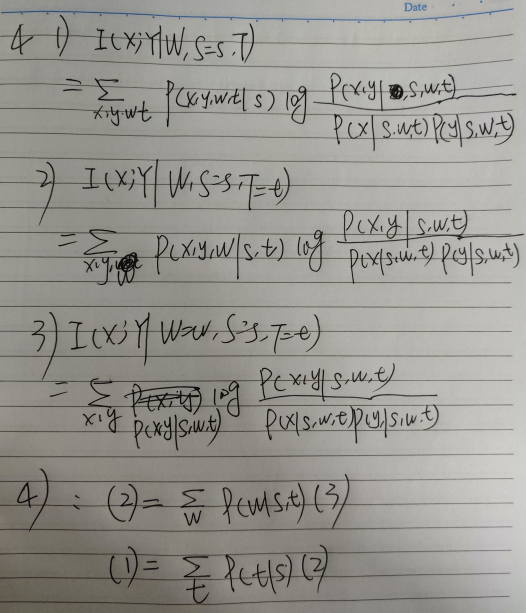 Date
4 1) I(X;Y|W,S=s,T)
= Σ_{x,y,w,t} P(x,y,w,t|s) log P(x,y|s,w,t) / P(x|s,w,t) P(y|s,w,t)
2) I(X;Y|W,S=s,T=t)
= Σ_{x,y,w} P(x,y,w|s,t) log P(x,y|s,w,t) / P(x|s,w,t) P(y|s,w,t)
3) I(X;Y|W=w,S=s,T=t)
= Σ_{x,y} P(xy|s,w,t) log P(x,y|s,w,t) / P(x|s,w,t) P(y|s,w,t)
4) : (2) = Σ_w P(w|s,t) (3)
(1) = Σ_t P(t|s) (2)